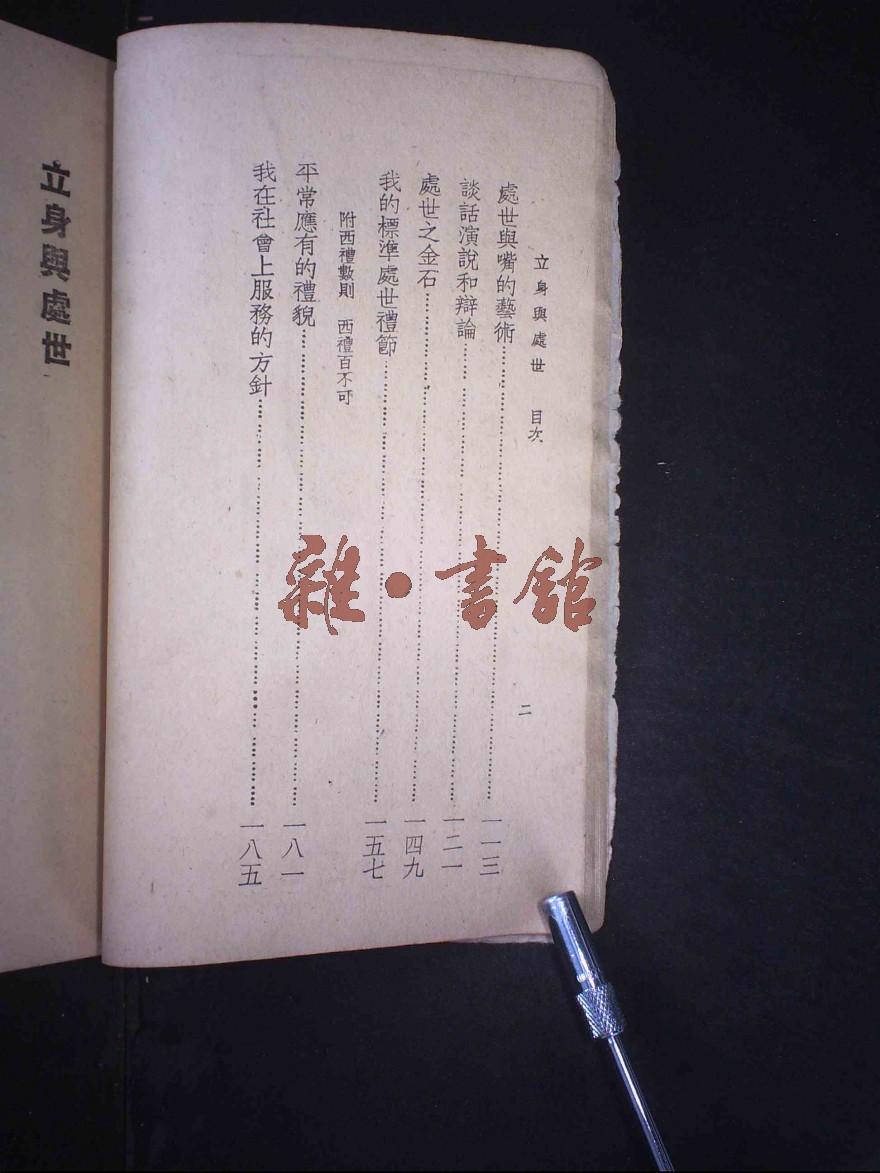 立身與處世 目次
二
處世與嘴的藝術 一一三
談話演說和辯論 一二一
處世之金石 一四九
我的標準處世禮節 一五七
附西禮數則 西禮百不可
平常應有的禮貌 一八一
我在社會上服務的方針 一八五
立身與處世
雜·書館